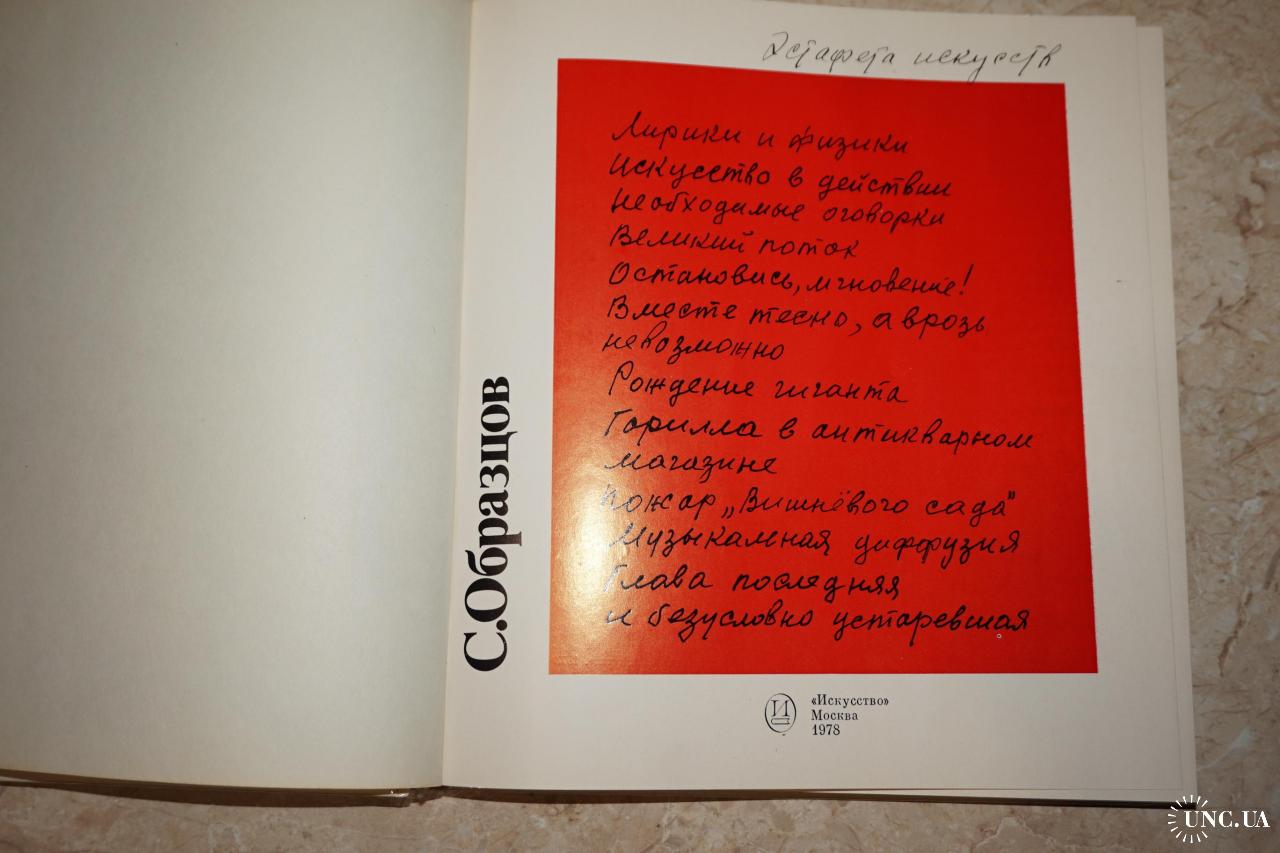 Эстафета искусств
Лирики и физики
Искусство в действии
Необходимые оговорки
Великий поток
Остановись, мгновение!
Вместе тесно, а врозь
невозможно
Рождение гиганта
Горилла в антикварном
магазине
Пожар „Вишнёвого сада"
Музыкальная диффузия
Глава последняя
и безусловно устаревшая
С.Образцов
И
«Искусство»
Москва
1978
UNC.UA